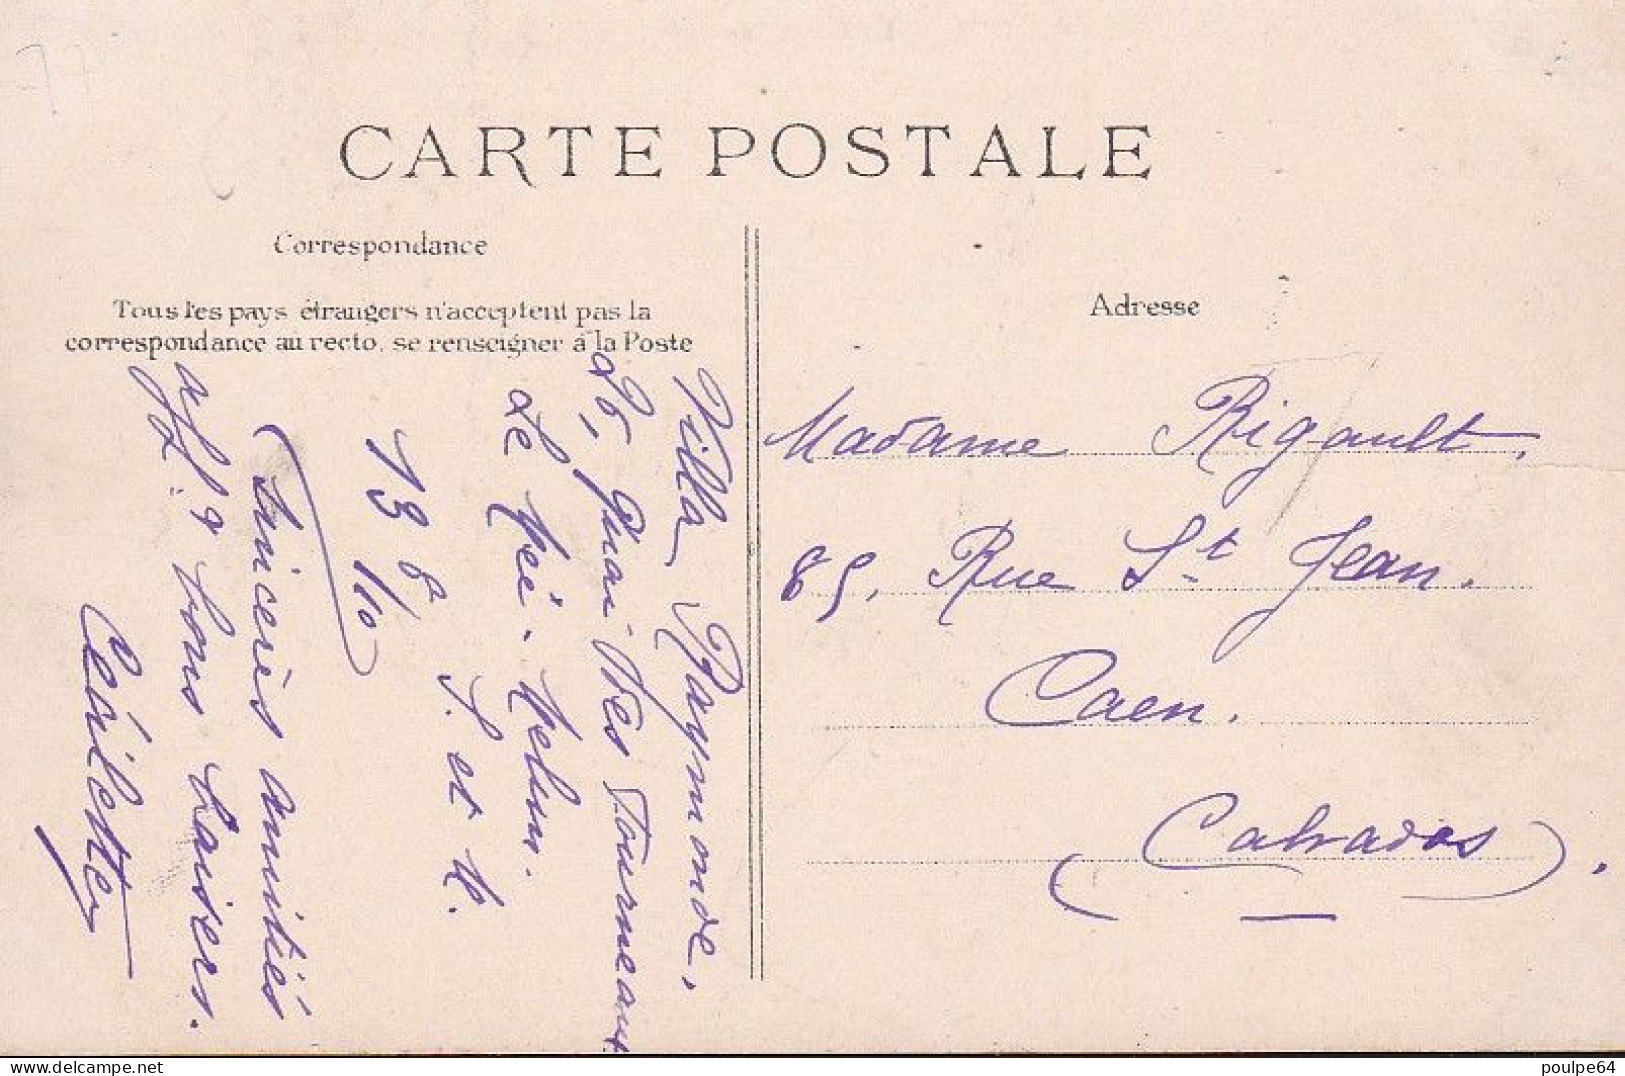 77
CARTE POSTALE
Correspondance
Tous les pays étrangers n'acceptent pas la
correspondance au recto, se renseigner à la Poste
Villa Raymonde,
26, Quai des Fourneaux
Le Mée. Melun.
S. et M.
13 6/10
Sincères amitiés
aff. & bons baisers.
Adresse
Madame Rigault,
85, Rue St Jean.
Caen.
(Calvados).
delcampe.net
poulpe64